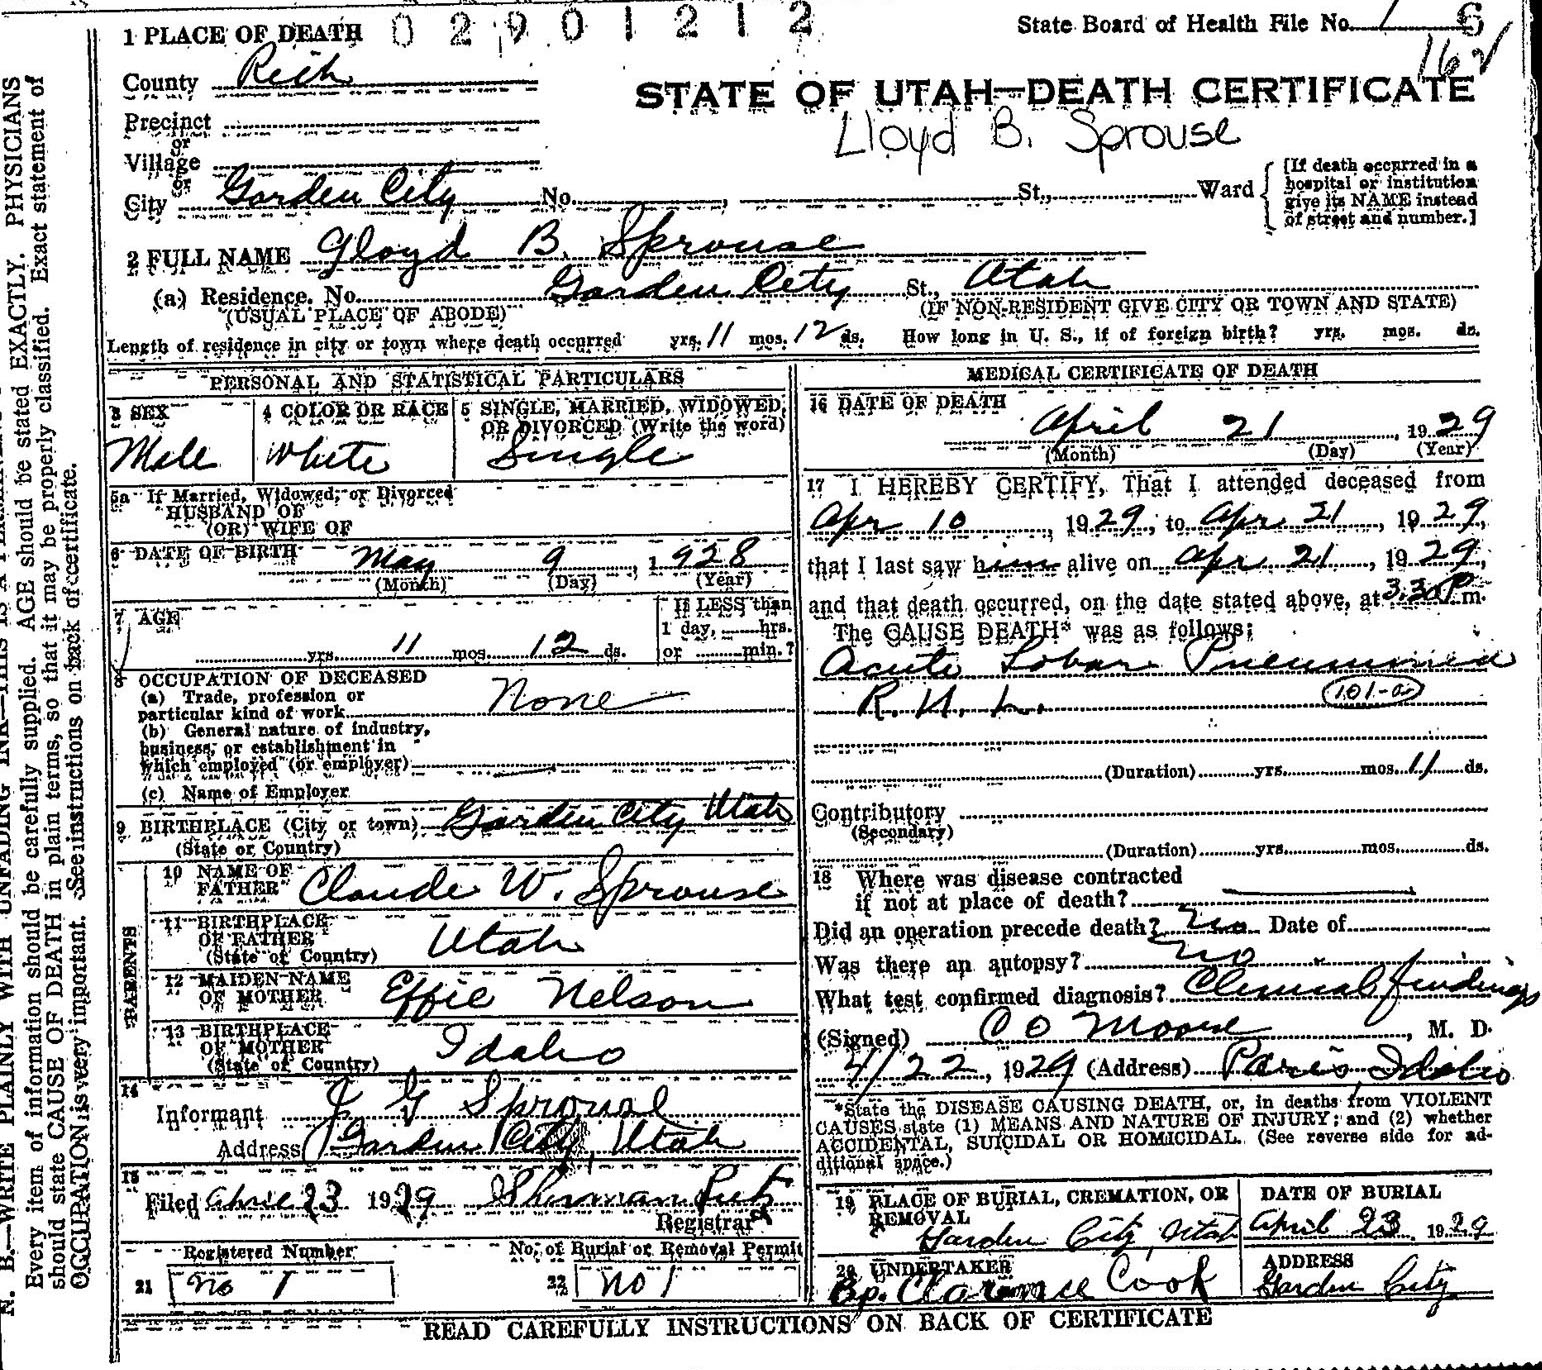 1 PLACE OF DEATH 02901212 State Board of Health File No. 6
County Rich 162
STATE OF UTAH—DEATH CERTIFICATE
Precinct
or
Lloyd B. Sprouse
Village
or
City Garden City No. , St., Ward {[If death occurred in a hospital or institution give its NAME instead of street and number.]
2 FULL NAME Gloyd B. Sprouse
(a) Residence. No. Garden City St., Utah
(USUAL PLACE OF ABODE) (IF NON-RESIDENT GIVE CITY OR TOWN AND STATE)
Length of residence in city or town where death occurred yrs. 11 mos. 12 ds. How long in U. S., if of foreign birth? yrs. mos. ds.
PERSONAL AND STATISTICAL PARTICULARS
3 SEX
Male
4 COLOR OR RACE
White
5 SINGLE, MARRIED, WIDOWED,
OR DIVORCED (Write the word)
Single
5a If Married, Widowed, or Divorced
HUSBAND OF
(OR) WIFE OF
6 DATE OF BIRTH May 9, 1928
(Month) (Day) (Year)
7 AGE
yrs. 11 mos. 12 ds.
If LESS than
1 day, hrs.
or min.?
8 OCCUPATION OF DECEASED
(a) Trade, profession or
particular kind of work None
(b) General nature of industry,
business, or establishment in
which employed (or employer)
(c) Name of Employer
9 BIRTHPLACE (City or town) Garden City Utah
(State or Country)
PARENTS
10 NAME OF
FATHER Claude W. Sprouse
11 BIRTHPLACE
OF FATHER
(State or Country) Utah
12 MAIDEN NAME
OF MOTHER Effie Nelson
13 BIRTHPLACE
OF MOTHER
(State of Country) Idaho
14
Informant J G Sprouse
Address Garden City, Utah
15
Filed April 23 1929 Sherman
Registrar
Registered Number
21 No 1
No. of Burial or Removal Permit
22 No 1
MEDICAL CERTIFICATE OF DEATH
16 DATE OF DEATH
April 21, 1929
(Month) (Day) (Year)
17 I HEREBY CERTIFY, That I attended deceased from
Apr 10, 1929, to Apr 21, 1929,
that I last saw him alive on Apr 21, 1929,
and that death occurred, on the date stated above, at 3:30 P m.
The CAUSE DEATH* was as follows:
Acute Lobar Pneumonia
R. U. L. 101-a
(Duration) yrs. mos. 11 ds.
Contributory
(Secondary)
(Duration) yrs. mos. ds.
18 Where was disease contracted
if not at place of death?
Did an operation precede death? No Date of
Was there an autopsy? No
What test confirmed diagnosis? Clinical findings
(Signed) C O Moore, M. D.
4/22, 1929 (Address) Paris, Idaho
*State the DISEASE CAUSING DEATH, or, in deaths from VIOLENT
CAUSES state (1) MEANS AND NATURE OF INJURY; and (2) whether
ACCIDENTAL, SUICIDAL OR HOMICIDAL. (See reverse side for ad-
ditional space.)
19 PLACE OF BURIAL, CREMATION, OR
REMOVAL
Garden City, Utah
DATE OF BURIAL
April 23 1929
20 UNDERTAKER
Bp. Clarence Cook
ADDRESS
Garden City
READ CAREFULLY INSTRUCTIONS ON BACK OF CERTIFICATE
N. B.—WRITE PLAINLY WITH UNFADING INK—THIS IS A
Every item of information should be carefully supplied. AGE should be stated EXACTLY. PHYSICIANS
should state CAUSE OF DEATH in plain terms, so that it may be properly classified. Exact statement of
OCCUPATION is very important. See instructions on back of certificate.